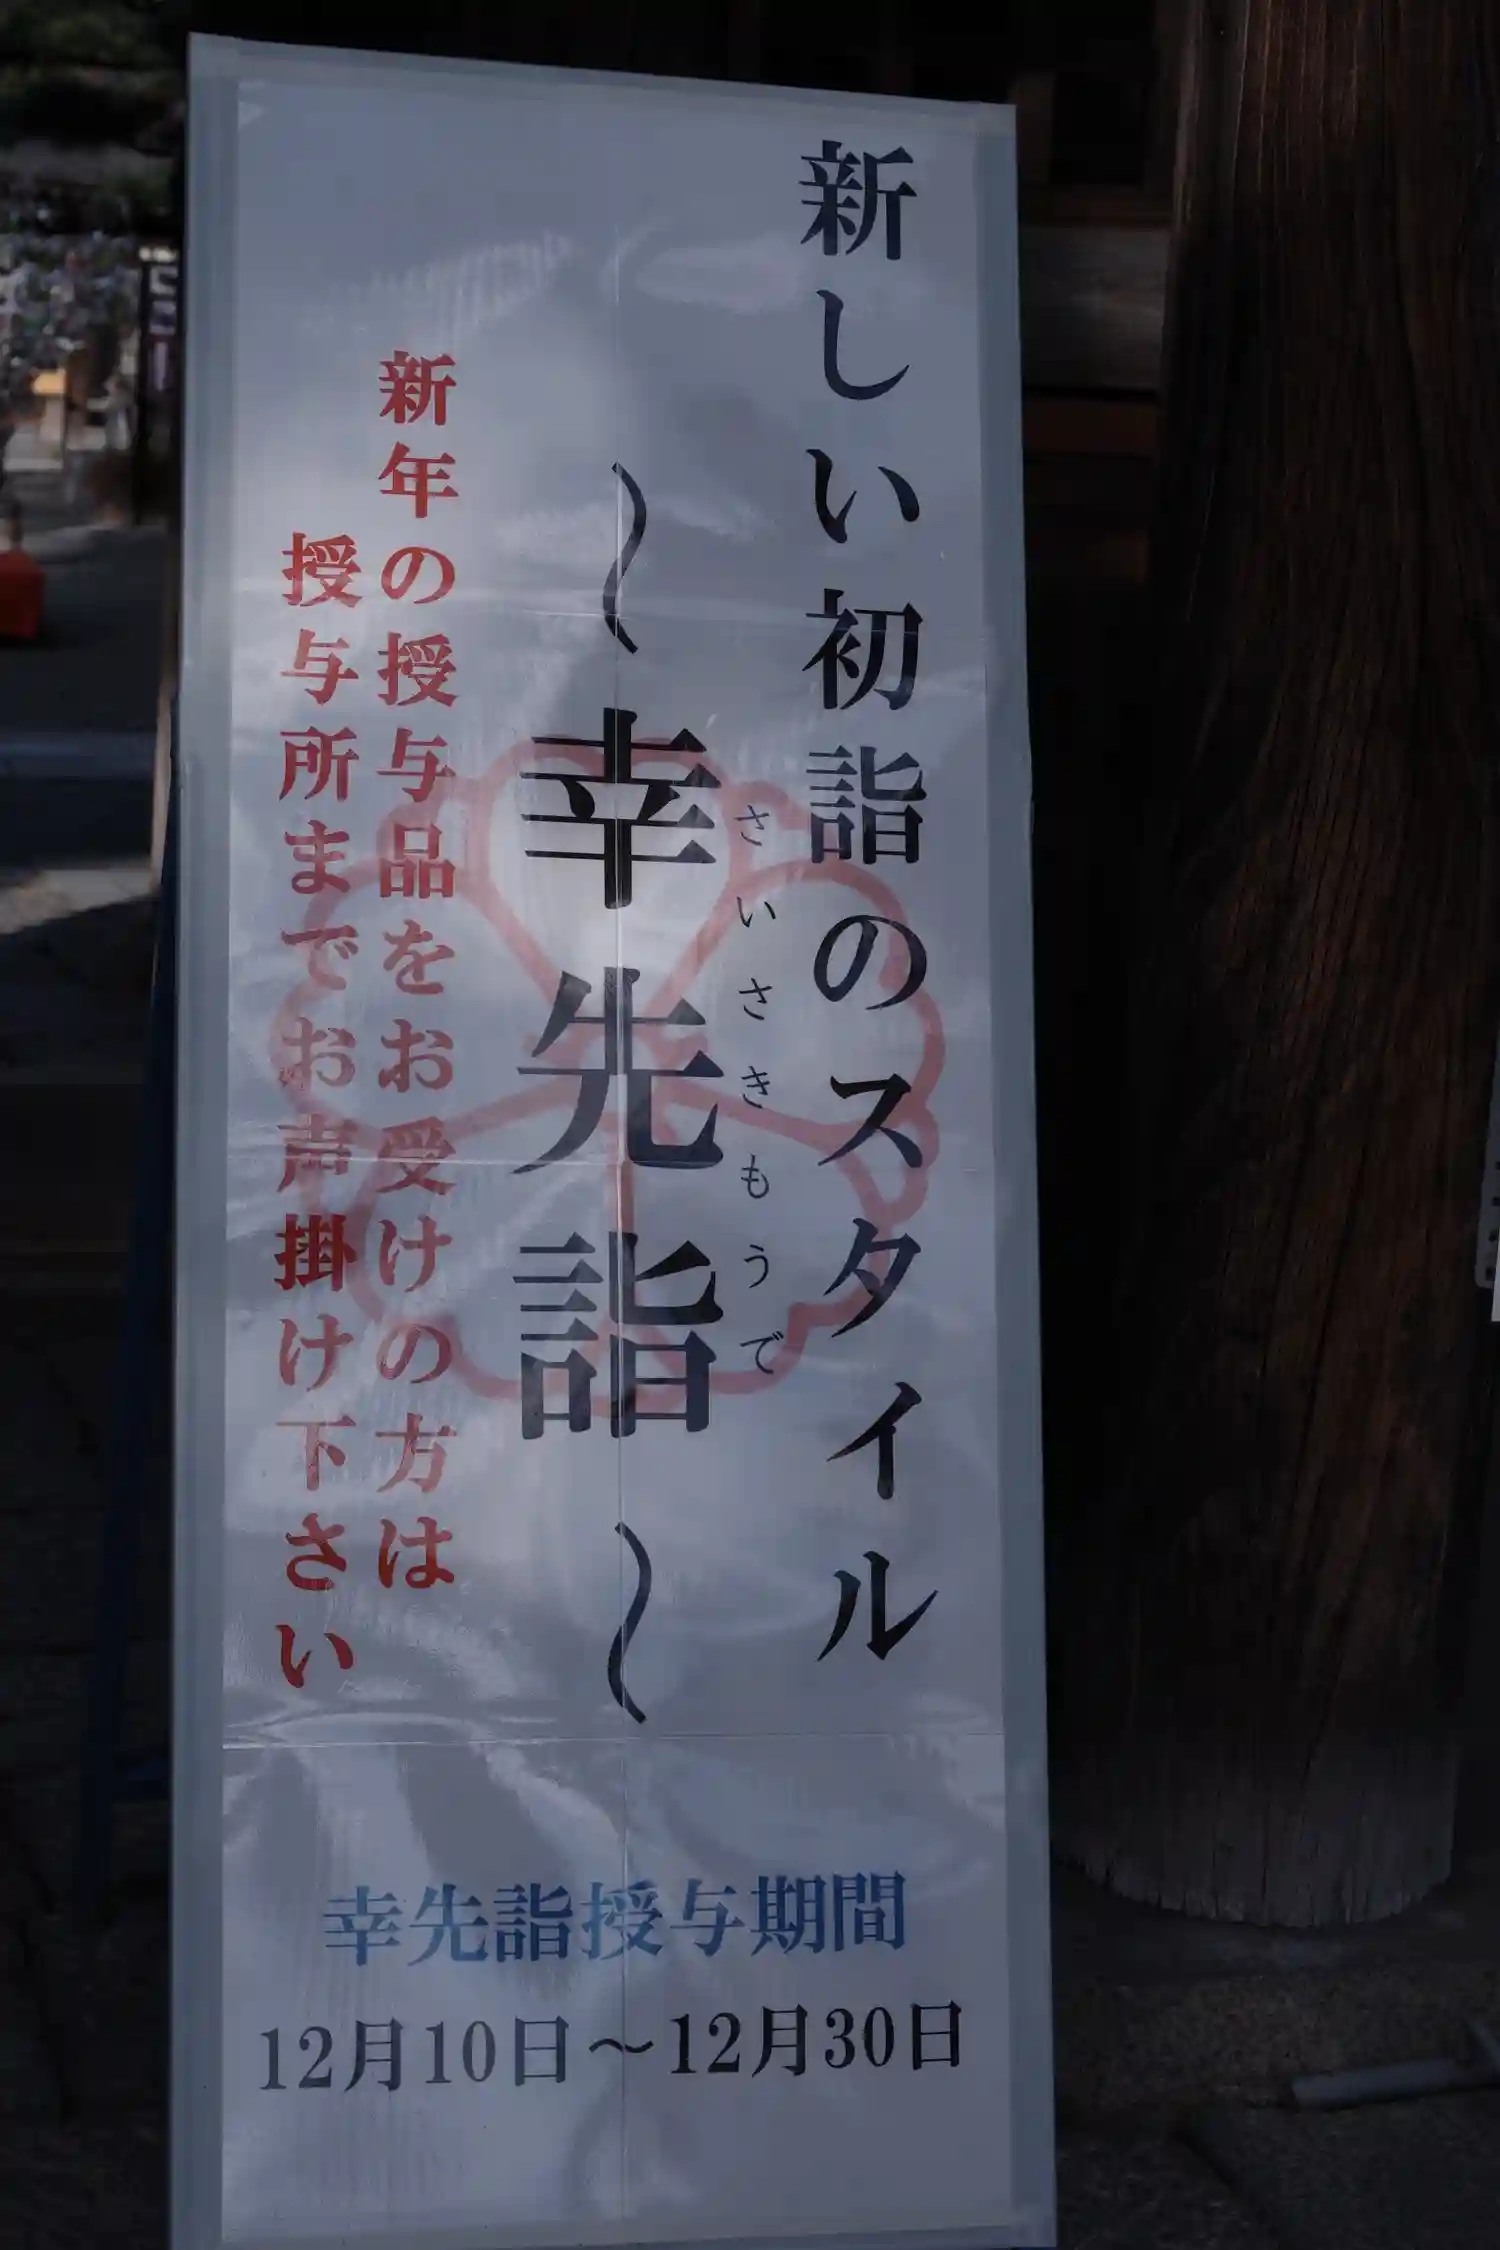 新しい初詣のスタイル
さいさきもうで
～幸先詣～
新年の授与品をお受けの方は
授与所までお声掛け下さい
幸先詣授与期間
12月10日～12月30日